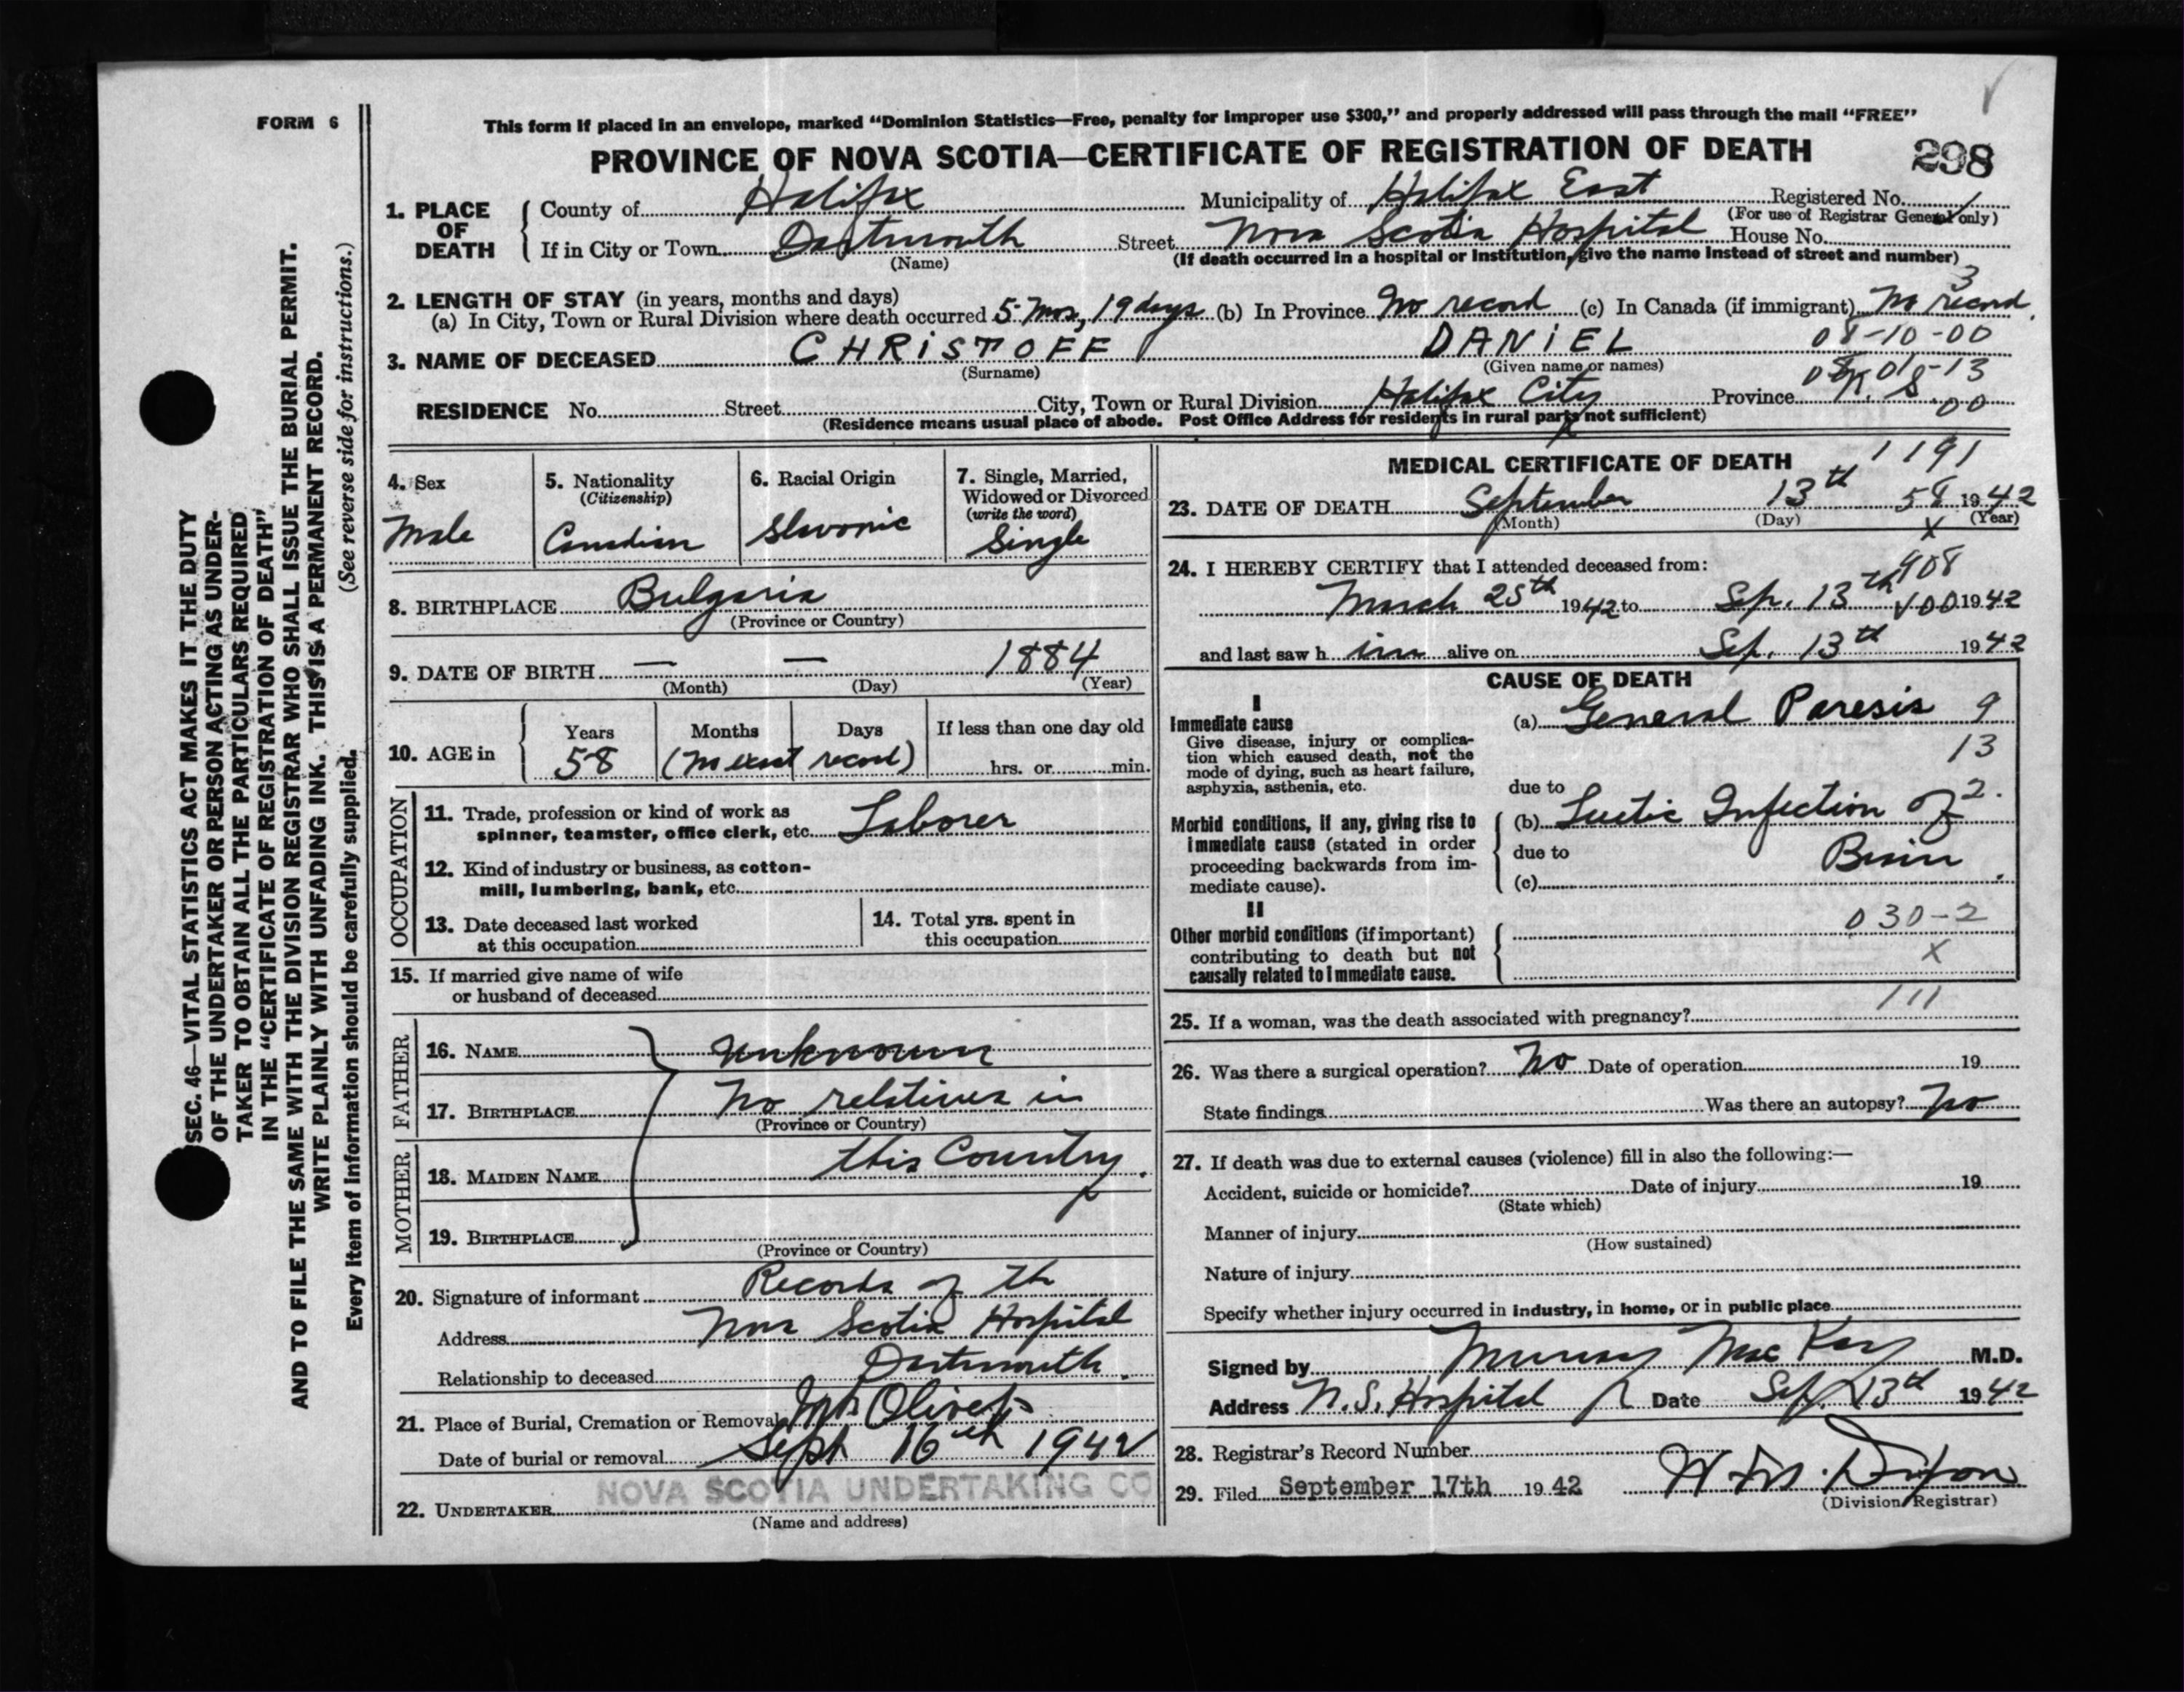 FORM 6
This form if placed in an envelope, marked "Dominion Statistics—Free, penalty for improper use $300," and properly addressed will pass through the mail "FREE"
PROVINCE OF NOVA SCOTIA—CERTIFICATE OF REGISTRATION OF DEATH 298
1. PLACE OF DEATH
County of Halifax Municipality of Halifax East Registered No.
(For use of Registrar General only)
If in City or Town Dartmouth Street Nova Scotia Hospital House No.
(Name) (If death occurred in a hospital or institution, give the name instead of street and number)
3
2. LENGTH OF STAY (in years, months and days)
(a) In City, Town or Rural Division where death occurred 5 Mos, 19 days (b) In Province No record (c) In Canada (if immigrant) No record.
08-10-00
3. NAME OF DECEASED CHRISTOFF DANIEL
(Surname) (Given name or names)
RESIDENCE No. Street City, Town or Rural Division Halifax City Province N. S.
00
(Residence means usual place of abode. Post Office Address for residents in rural parts not sufficient)
4. Sex
Male
5. Nationality
(Citizenship)
Canadian
6. Racial Origin
Slavonic
7. Single, Married,
Widowed or Divorced
(write the word)
Single
8. BIRTHPLACE Bulgaria
(Province or Country)
9. DATE OF BIRTH — — 1884
(Month) (Day) (Year)
10. AGE in
Years Months Days If less than one day old
58 (No exact record) hrs. or min.
OCCUPATION
11. Trade, profession or kind of work as
spinner, teamster, office clerk, etc. Laborer
12. Kind of industry or business, as cotton-
mill, lumbering, bank, etc.
13. Date deceased last worked
at this occupation
14. Total yrs. spent in
this occupation
15. If married give name of wife
or husband of deceased
FATHER
16. NAME unknown
17. BIRTHPLACE No relatives in
(Province or Country)
MOTHER
18. MAIDEN NAME this Country.
19. BIRTHPLACE
(Province or Country)
20. Signature of informant Records of the
Address Nova Scotia Hospital
Relationship to deceased Dartmouth.
21. Place of Burial, Cremation or Removal Mt Olivet
Date of burial or removal Sept 16th 1942
22. UNDERTAKER NOVA SCOTIA UNDERTAKING CO
(Name and address)
MEDICAL CERTIFICATE OF DEATH 1191
23. DATE OF DEATH September 13th 58 1942
(Month) (Day) (Year)
X
24. I HEREBY CERTIFY that I attended deceased from:
908
March 25th 1942 to Sep. 13th 1942
and last saw h im alive on Sep. 13th 1942
CAUSE OF DEATH
I
Immediate cause (a) General Paresis 9
Give disease, injury or complica-
tion which caused death, not the
mode of dying, such as heart failure,
asphyxia, asthenia, etc.
13
due to
Morbid conditions, if any, giving rise to
immediate cause (stated in order
proceeding backwards from im-
mediate cause).
(b) Luetic Infection of 2.
due to Brain
(c)
II
Other morbid conditions (if important)
contributing to death but not
causally related to immediate cause.
030-2
X
111
25. If a woman, was the death associated with pregnancy?
26. Was there a surgical operation? No Date of operation 19
State findings Was there an autopsy? No
27. If death was due to external causes (violence) fill in also the following:—
Accident, suicide or homicide? Date of injury 19
(State which)
Manner of injury
(How sustained)
Nature of injury
Specify whether injury occurred in industry, in home, or in public place
Signed by Murray MacKay M.D.
Address N.S. Hospital Date Sep. 13th 1942
28. Registrar's Record Number
29. Filed September 17th 1942
(Division Registrar)
SEC. 46—VITAL STATISTICS ACT MAKES IT THE DUTY
OF THE UNDERTAKER OR PERSON ACTING AS UNDER-
TAKER TO OBTAIN ALL THE PARTICULARS REQUIRED
IN THE "CERTIFICATE OF REGISTRATION OF DEATH"
AND TO FILE THE SAME WITH THE DIVISION REGISTRAR WHO SHALL ISSUE THE BURIAL PERMIT.
WRITE PLAINLY WITH UNFADING INK. THIS IS A PERMANENT RECORD.
(See reverse side for instructions.)
Every item of information should be carefully supplied.